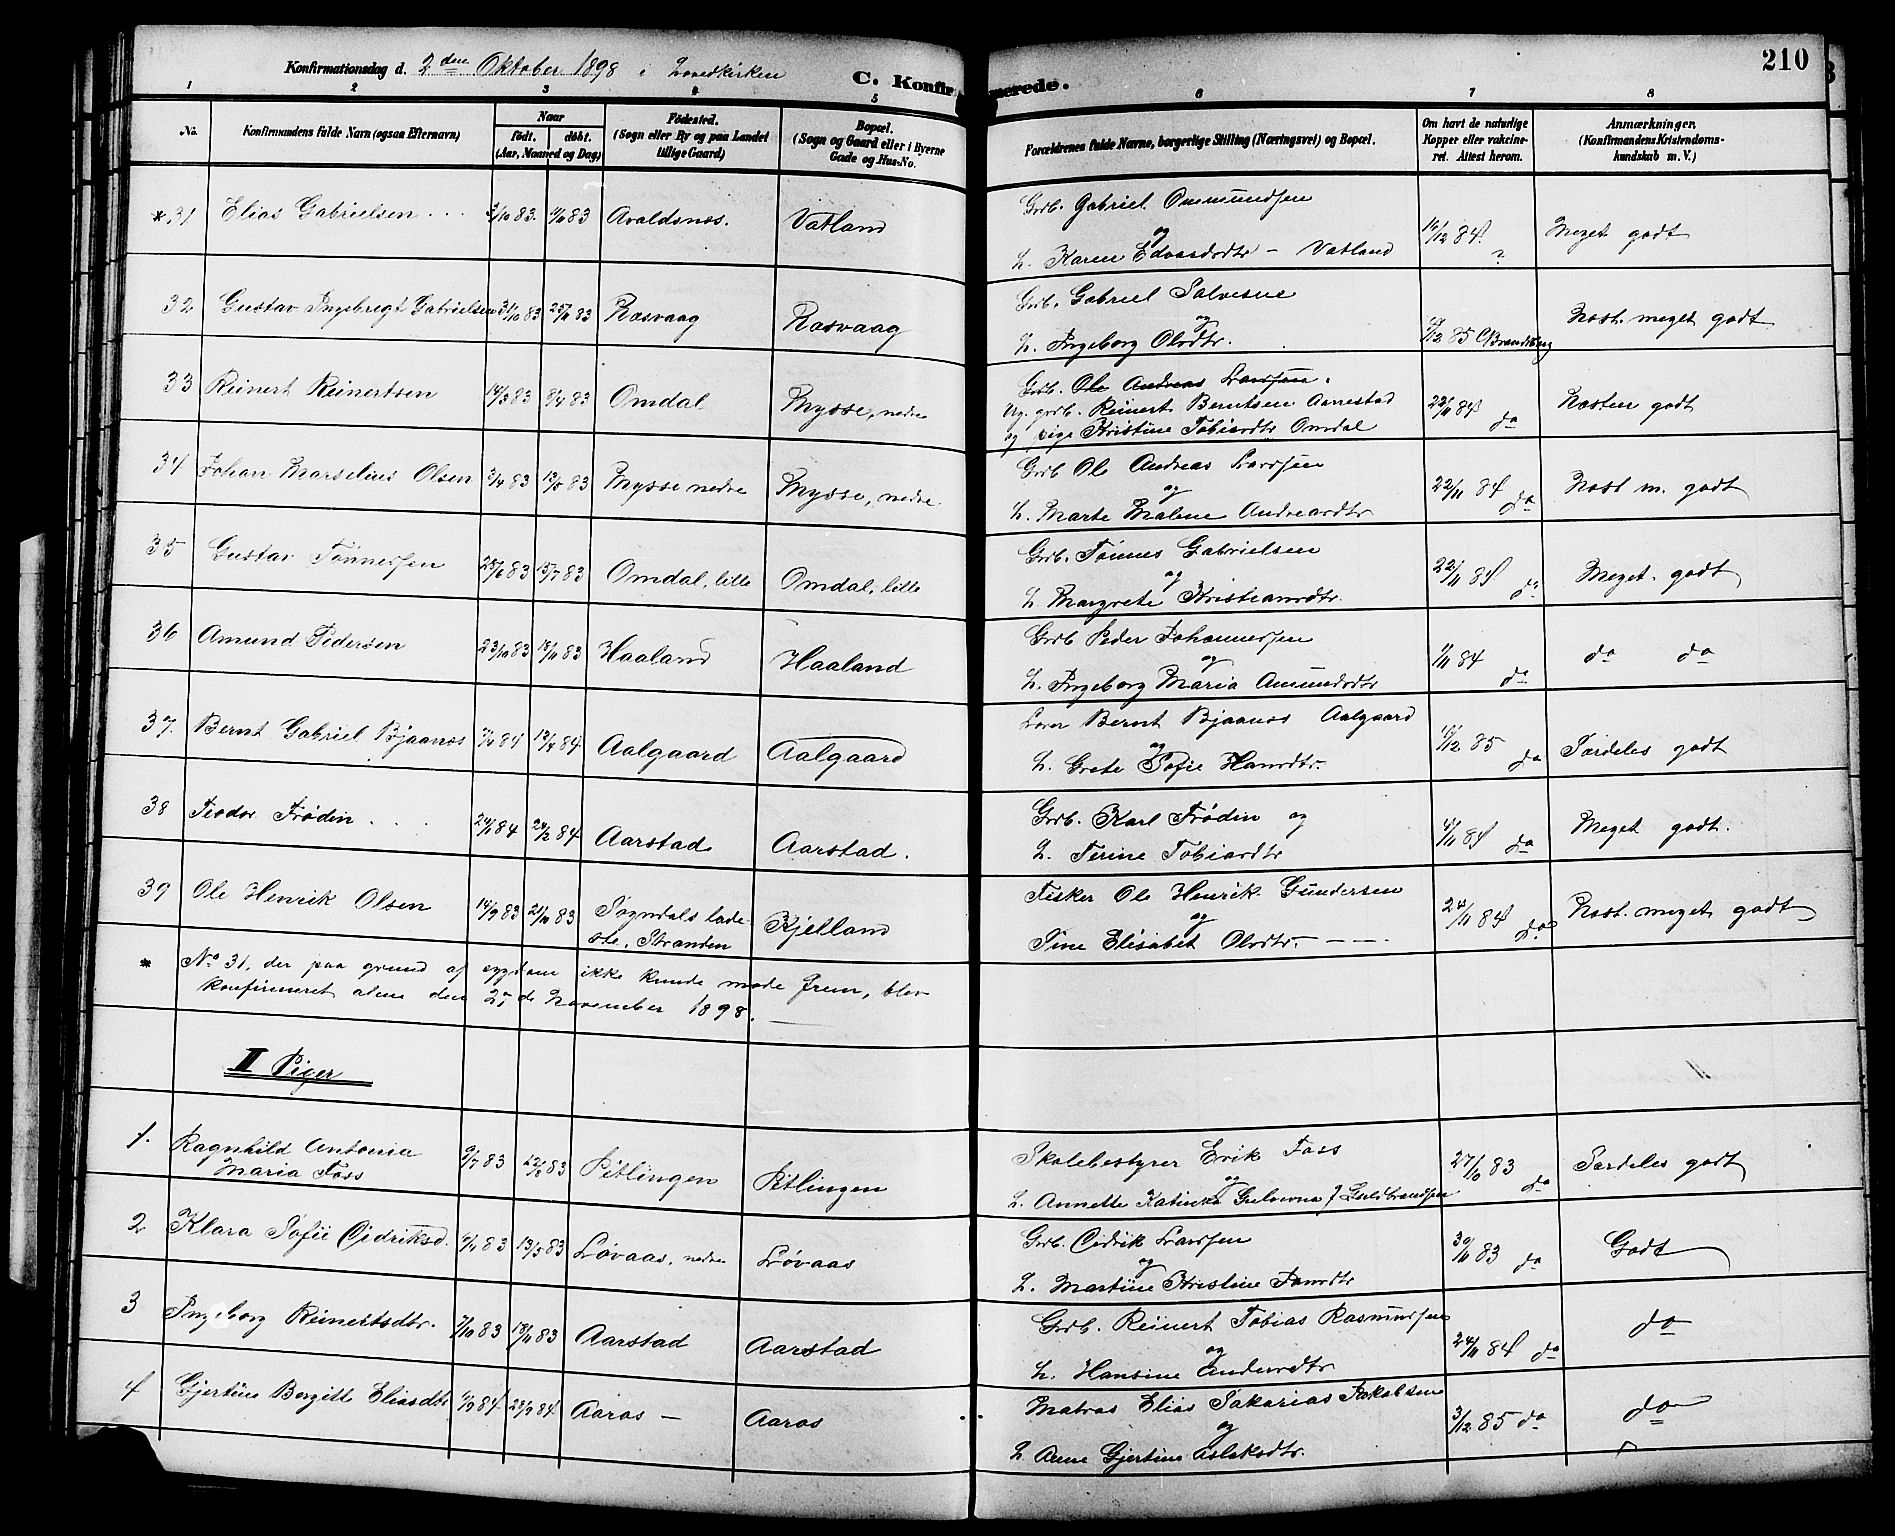 210
Konfirmationsdag d. 2den Oktober 1898 i
C. Konfirmerede.
1 2 3 4 5 6 7 8
No. Konfirmandens fulde Navn (ogsaa Efternavn) Naar født. døbt. (Aar, Maaned og Dag) Fødested. (Sogn eller By og paa Landet tillige Gaard) Bopæl. (Sogn og Gaard eller i Byerne Gade og Hus-No. Forældrenes fulde Navne, borgerlige Stilling (Næringsvei) og Bopæl. Om havt de naturlige Kopper eller vakcineret. Attest herom. Anmærkninger. (Konfirmandens Kristendomskundskab m. V.)
*31 Elias Gabrielsen 83 83 Avaldsnes. Vatland Grdb. Gabriel Ommundsen
og
h. Karen Edvardsdtr – Vatland 16/12 84. ? Meget godt
32 Gustav Ingebregt Gabrielsen 31/10 83 25/11 83 Rasvaag Rasvaag Grdb. Gabriel Salvesne
og
h. Ingeborg Olsdtr. 85 Næst. meget godt
33 Reinert Reinertsen 14/3 83 8/4 83 Omdal Mysse, nedre Grdb. Ole Andreas Larssen.
Ug. grdb. Reinert Berntsen Aanestad
og pige Kristine Tobiasdtr Omdal 22/11 84 do Næsten godt
34 Johan Marselius Olsen 3/4 83 13/5 83 Mysse nedre Mysse, nedre Grdb Ole Andreas Larssen
og
h. Marte Malene Andreasdtr 22/11 84 do Næst m. godt
35 Gustav Tønnessen 25/6 83 15/7 83 Omdal, lille Omdal, lille Grdb. Tønnes Gabrielsen
og
h. Margrete Kristiansdtr. 22/11 84 do Meget godt
36 Amund Pedersen 23/10 83 18/11 83 Haaland Haaland Grdb Peder Johannessen
og
h. Ingeborg Maria Amundsdtr 84 do do do
37. Bernt Gabriel Bjaanes 84 13/4 84 Aalgaard Aalgaard Lærer Bernt Bjaanes Aalgaard
og
h. Grete Sofie Hansdtr. 85 do Særdeles godt
38 Teodor Frødin 24/1 84 24/2 84 Aarstad Aarstad. Grdb. Karl Frødin og
h. Terine Tobiasdtr 4/11 84 do Meget godt.
39 Ole Henrik Olsen 14/9 83 21/10 83 Søgndals ladested. Stranden Kjelland Fisker Ole Henrik Gundersen
og
Tine Elisabet Olsdtr. 24/11 84 do Næst. meget godt
* No 31, der paa grund af sygdom ikke kunde møde frem, blev
konfirmeret alene den 27de November 1898.
II Piger
1. Ragnhild Antonia
Maria Foss 83 83 Sitlingen Sitlingen Skolebestyrer Erik Foss
og
h. Annette Katinka f Guldbrandsen 27/10 83 do Særdeles godt
2 Klara Sofie Cidriksd. 83 13/5 83 Løvaas, nedre Løvaas Grdb. Cidrik Larssen
og
h. Martine Kristine Jansdtr 30/11 83 do Godt
3 Ingeborg Reinertsdtr. 83 18/11 83 Aarstad Aarstad Grdb. Reinert Tobias Rasmussen
og
h. Hansine Andersdtr 24/11 84 do do
4 Gjertine Bergitte Eliasdtr 84 84 Aaros – Aaros Matros Elias Sakarias Jakobsen
og
h. Anne Gjertine Aslaksdtr. 3/12 85 do do